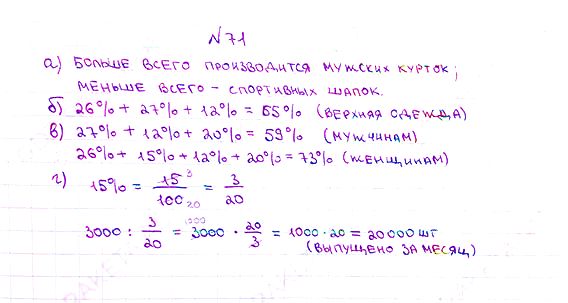 №71
а) БОЛЬШЕ ВСЕГО ПРОИЗВОДИТСЯ МУЖСКИХ КУРТОК;
МЕНЬШЕ ВСЕГО – СПОРТИВНЫХ ШАПОК.
б) 26% + 27% + 12% = 65% (ВЕРХНЯЯ ОДЕЖДА)
в) 27% + 12% + 20% = 59% (МУЖЧИНАМ)
26% + 15% + 12% + 20% = 73% (ЖЕНЩИНАМ)
г) 15% = 15 3/100 20 = 3/20
3000 : 3/20 = 3000 1000 · 20/3 = 1000 · 20 = 20000 ШТ
(ВЫПУЩЕНО ЗА МЕСЯЦ)